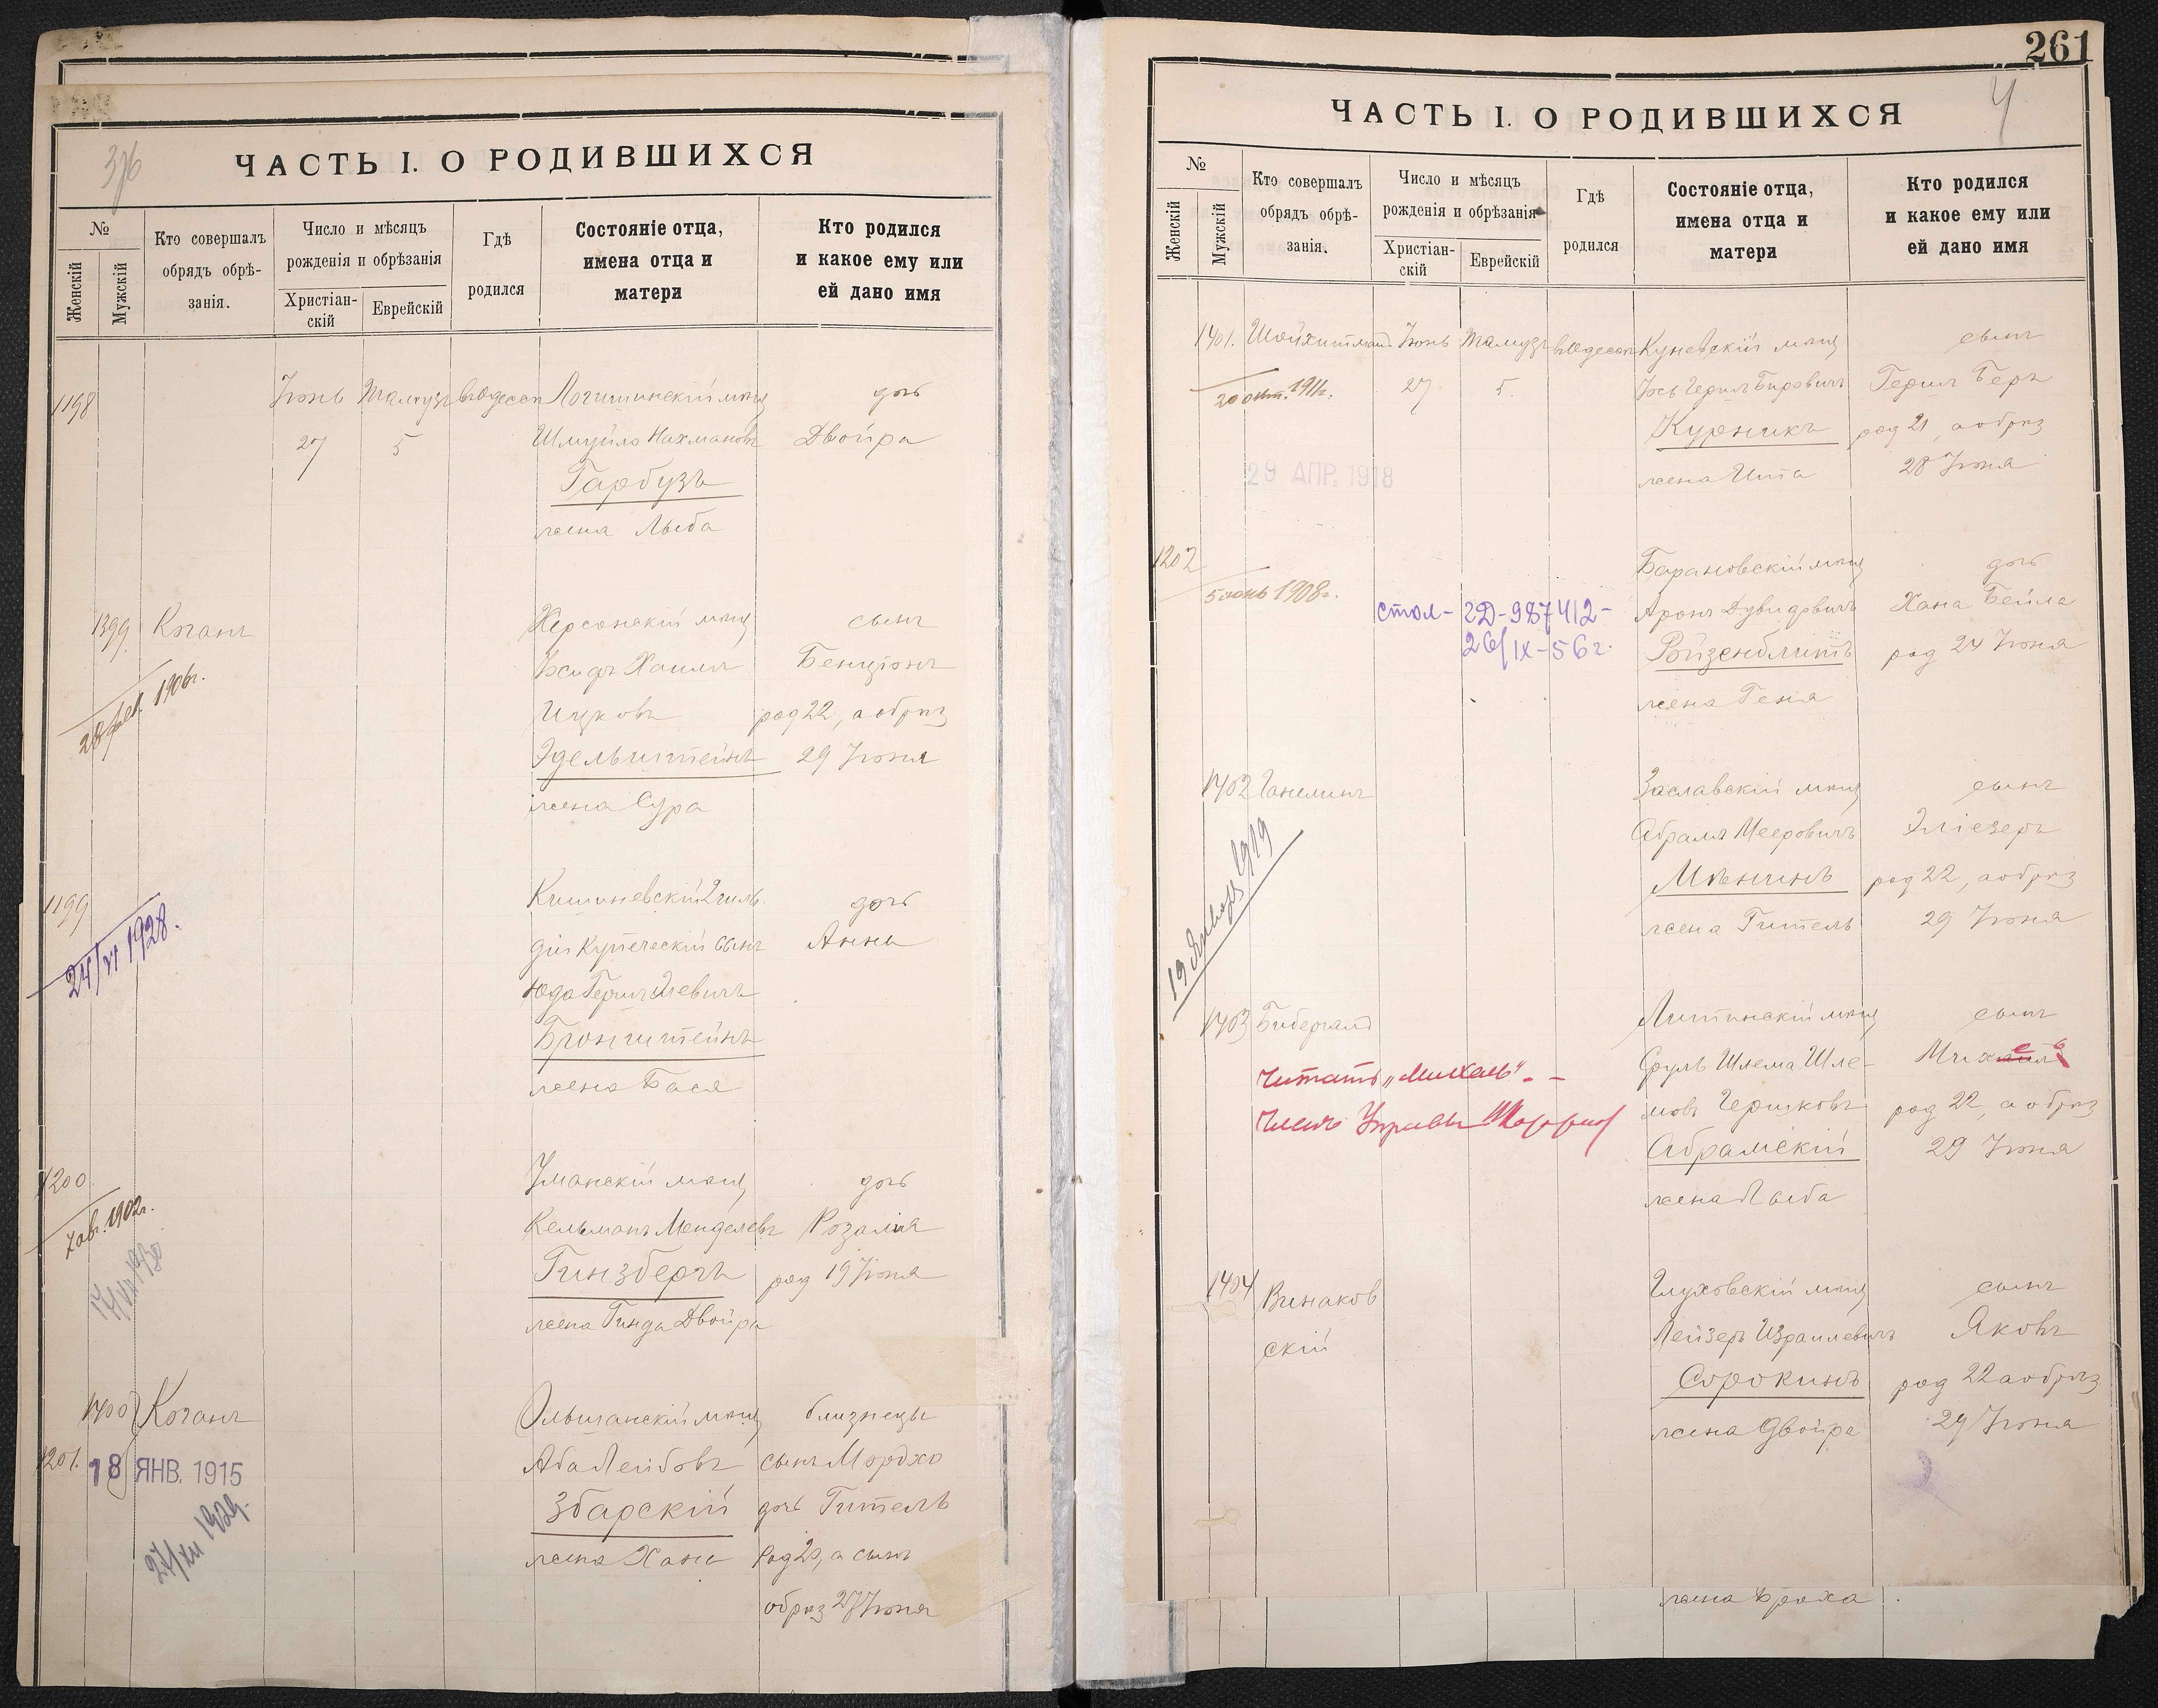 376
ЧАСТЬ I. О РОДИВШИХСЯ
№
Женскій
Мужскій
Кто совершалъ обрядъ обрѣ-
занія.
Число и мѣсяцъ
рожденія и обрѣзанія
Христіан-
скій
Еврейскій
Гдѣ
родился
Состояніе отца,
имена отца и
матери
Кто родился
и какое ему или
ей дано имя
1198 Іюнь Тамузъ вОдессѣ Логишинскій мѣщ дочь
27 5 Шмуйло Нахмановъ Двойра
Гарбузъ
жена Лыба
1399 Коганъ Херсонскій мѣщ сынъ
28 фев. 1906г.
Іосифъ Хаимъ Бенціонъ
Ицковъ род 22, а обрѣз
Эдельштейнъ 29 Іюня
жена Сура
1199 Кишиневскій 2 гиль- дочь
24/VI 1928.
діи Купеческій сынъ Анна
Юда Гершъ
Бронштейнъ
жена Бася
1200 Уманскій мѣщ дочь
7 авг. 1902г.
Кельманъ Менделевъ Розалія
Гинзбергъ род 19 Іюня
жена Гинда Двойра
1400 Коганъ Ольшанскій мѣщ близнецы
1201. 18 ЯНВ. 1915 Аба Лейбовъ сынъ Мордко
27/XII 1929.
Збарскій дочь Гитель
жена Хана Род 20, а сынъ
обрѣз 27 Іюня
261
4
ЧАСТЬ I. О РОДИВШИХСЯ
№
Женскій
Мужскій
Кто совершалъ
обрядъ обрѣ-
занія.
Число и мѣсяцъ
рожденія и обрѣзанія
Христіан-
скій
Еврейскій
Гдѣ
родился
Состояніе отца,
имена отца и
матери
Кто родился
и какое ему или
ей дано имя
1401. Іюнь Тамузъ вОдессѣ Куневскій мѣщ сынъ
20 окт. 1911г. 27 5. Іось Гершъ Берковичъ Гершъ Беръ
Курникъ род 21, а обрѣз
29 АПР. 1918 жена Ита 28 Іюня
1202 Барановскій мѣщ дочь
5 іюнь 1908г. стол- 2Д-987412- Аронъ Дувидовичъ Хана Бейла
26/IX-56г. Ройзенблитъ род 24 Іюня
жена Геня
1402 Ганелинъ Заславскій мѣщ сынъ
19 Января 1919
Абрамъ Мееровичъ Эліезеръ
Мѣнинъ род 22, а обрѣз
жена Гитель 29 Іюня
1403 Бибергалъ Литинскій мѣщ сынъ
Читать „Михель" Сруль Шлема Шле-
Членъ Управы мовъ Гершковъ род 22, а обрѣз
Абрамскій 29 Іюня
жена Лыба
1404 Винаков Глуховскій мѣщ сынъ
скій Лейзеръ Израилевичъ Яковъ
Сорокинъ род 22 а обрѣз
жена Двойра 29 Іюня
жена Броха